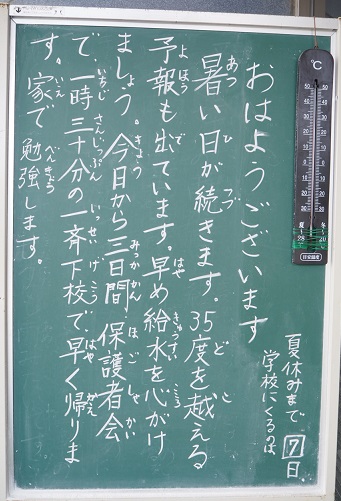 おはようございます
あつ ひ つづ ど こ
暑い日が続きます。35度を越える
よほう で はや きゅうすい こころ
予報も出ています。早め給水を心がけ
きょう みっかかん ほごしゃかい
ましょう。今日から三日間、保護者会
いちじ さんじっぷん いっせい げこう はや かえ
で、一時三十分の一斉下校で、早く帰りま
いえ べんきょう
す。家で勉強します。
夏休みまで
学校にくるのは
7日
℃
夏 冬
28 20